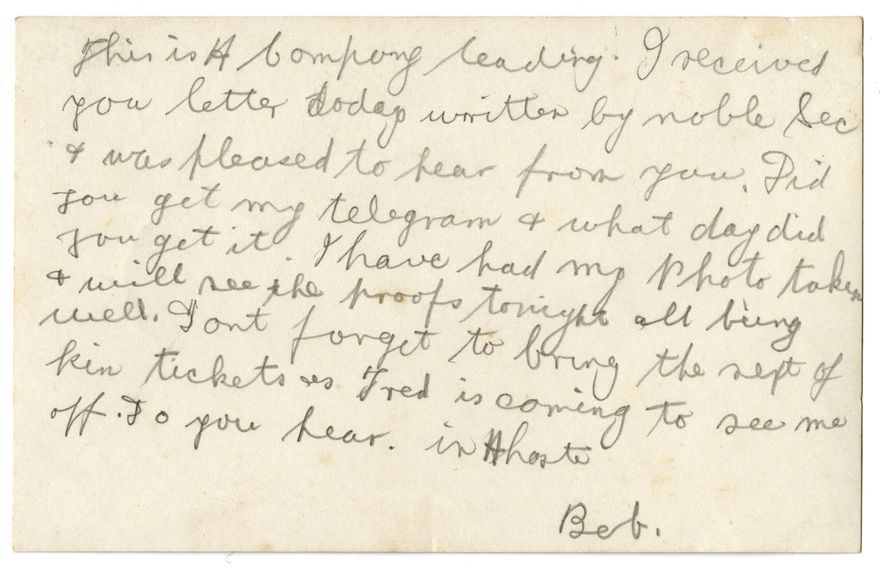 This is A Company leading. I received
you letter today written by noble Sec
& was pleased to hear from you. Did
you get my telegram & what day did
you get it. I have had my Photo taken
& will see the proofs tonight all being
well. Dont forget to bring the next of
kin tickets as Fred is coming to see me
off. Do you hear. in Ahaste
Bob.